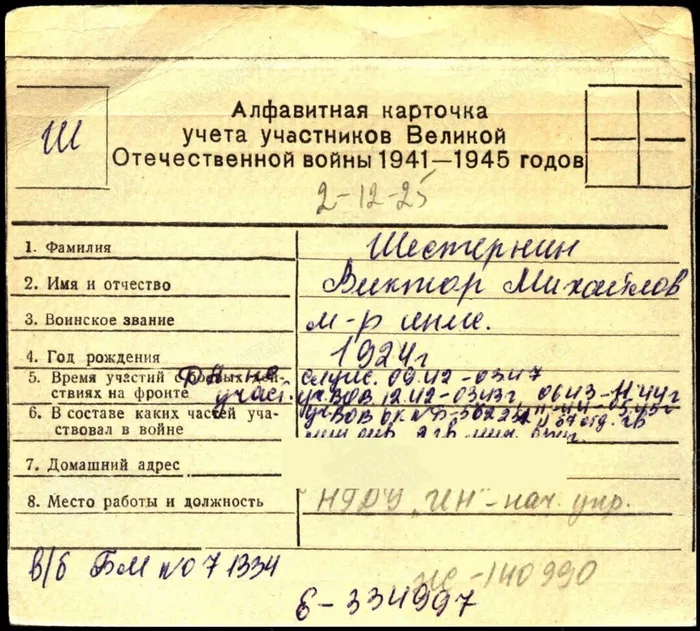 Ш
Алфавитная карточка
учета участников Великой
Отечественной войны 1941—1945 годов
2-12-25
1. Фамилия Шестернин
2. Имя и отчество Виктор Михайлов
3. Воинское звание м-р
4. Год рождения 1924г
5. Время участий с боевых дей-
ствиях на фронте участ. служ. 09.42-0347
уч. ВОВ 12.42-0343г, 0643-11.44г
6. В составе каких частей уча-
ствовал в войне уч. ВОВ
7. Домашний адрес
8. Место работы и должность НГДУ - нач. упр.
в/б БМ № 071334
-140990
Б-334997